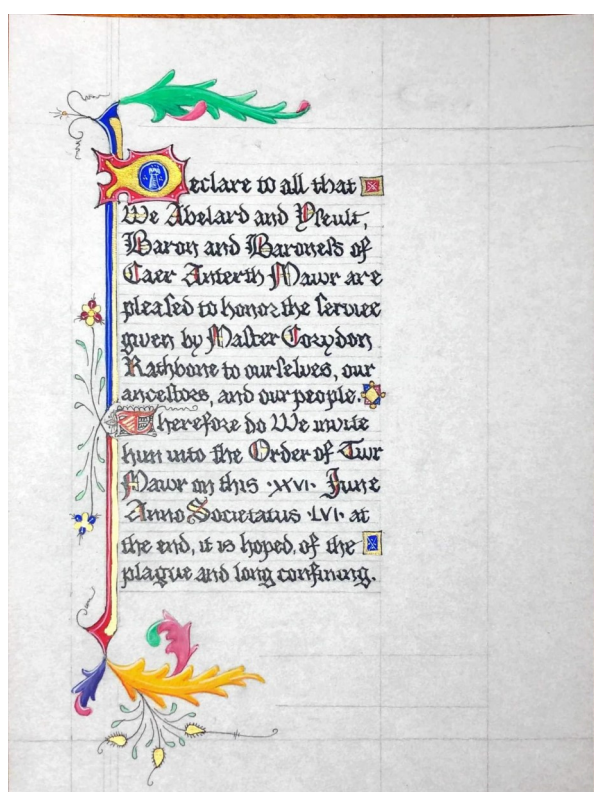 Declare to all that
We Abelard and Yseult,
Baron and Baroness of
Caer Anterth Mawr are
pleased to honor the service
given by Master Corydon
Rathbone to ourselves, our
ancestors, and our people.
Therefore do We invite
him into the Order of Twr
Mawr on this ·xxvi· June
Anno Societatus ·LVI· at
the end, it is hoped, of the
plague and long confining.